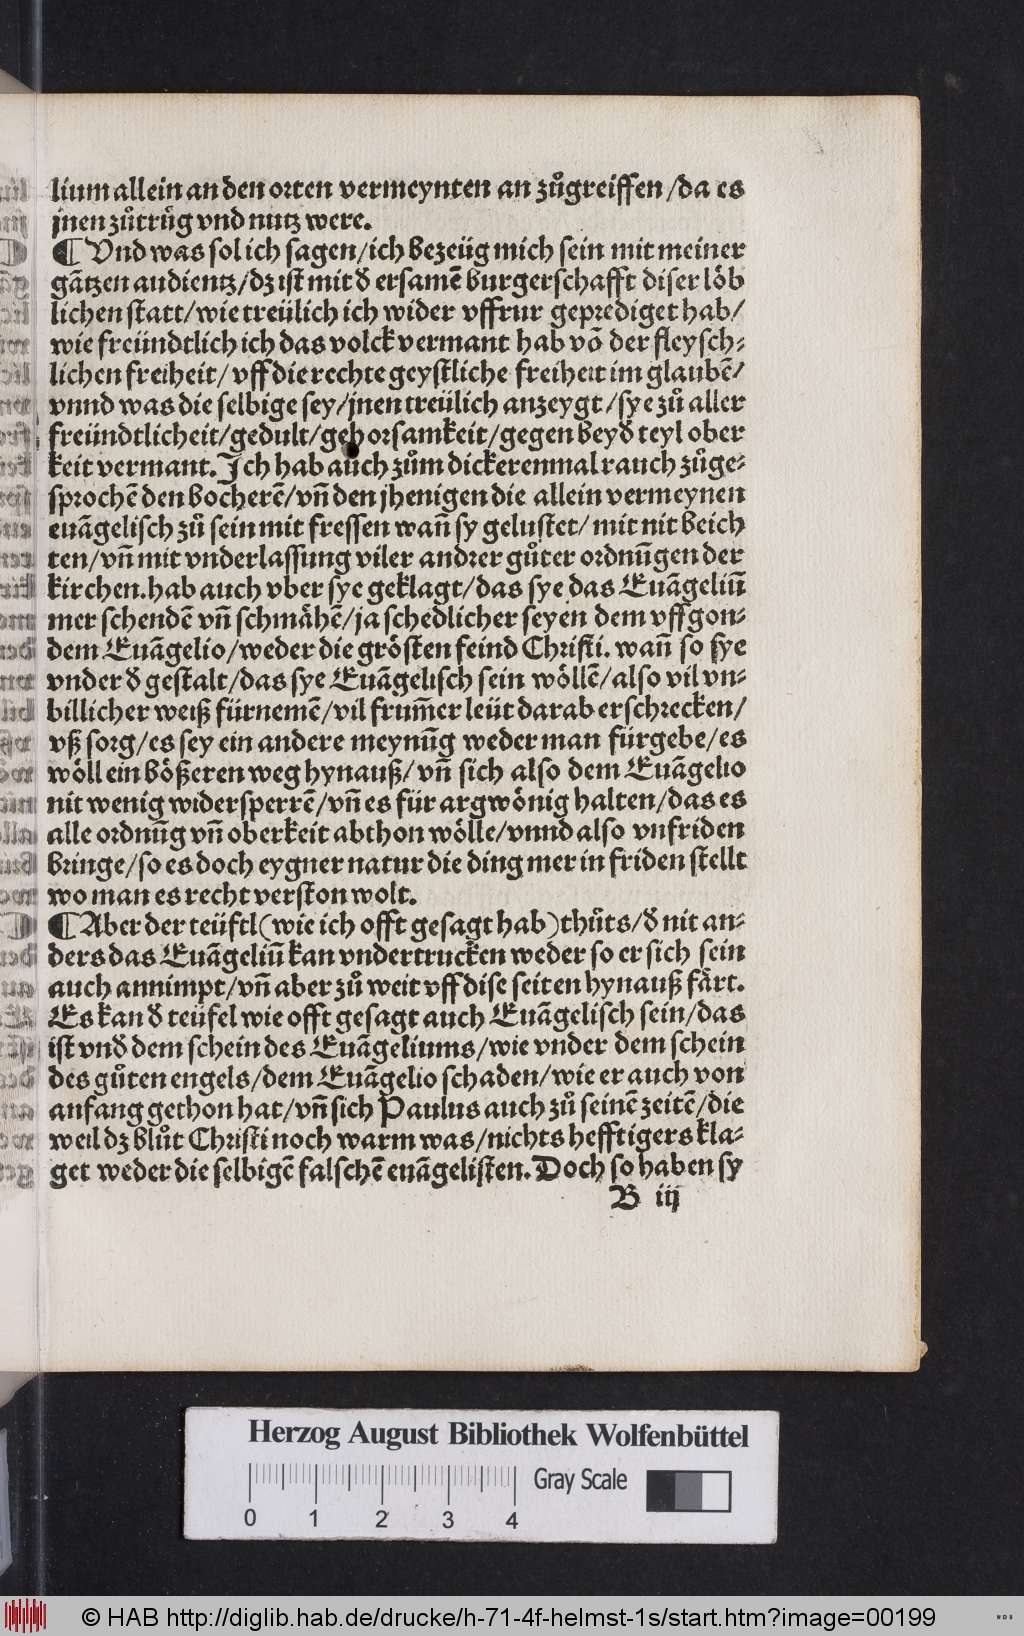 lium allein an den orten vermeynten an zůgreiffen /da es
jnen zůtrůg vnd nutz were.
¶ Vnd was sol ich sagen/ich bezeüg mich sein mit meiner
gãtzen audientz/dz ist mit d̓ ersamẽ burgerschafft diser löb
lichen statt/wie treülich ich wider vffrur geprediget hab/
wie freündtlich ich das volck vermant hab võ der fleysch⸗
lichen freiheit/vff die rechte geystliche freiheit im glaubẽ/
vnnd was die selbige sey/jnen treülich anzeygt/sye zů aller
freündtlicheit/gedult/gehorsamkeit/gegen beyd̓ teyl ober
keit vermant. Ich hab auch zům dickerenmal rauch zůge⸗
sprochẽ den bocherẽ/vñ den jhenigen die allein vermeynen
euãgelisch zů sein mit fressen wañ sy gelustet/mit nit beich
ten/vñ mit vnderlassung viler andrer gůter ordnũgen der
kirchen.hab auch vber sye geklagt/das sye das Euãgeliũ
mer schendẽ vñ schmähẽ/ja schedlicher seyen dem vffgon⸗
dem Euãgelio/weder die grösten feind Christi. wañ so sye
vnder d̓ gestalt/das sye Euãgelisch sein wöllẽ/also vil vn⸗
billicher weiß fürnemẽ/vil frum̃er leüt darab erschrecken/
vß sorg/es sey ein andere meynũg weder man fürgebe/es
wöll ein bößeren weg hynauß/vñ sich also dem Euãgelio
nit wenig widersperrẽ/vñ es für argwönig halten/das es
alle ordnũg vñ oberkeit abthon wölle/vnnd also vnfriden
bringe/so es doch eygner natur die ding mer in friden stellt
wo man es recht verston wolt.
¶ Aber der teüftl(wie ich offt gesagt hab)thůts/d̓ nit an⸗
ders das Euãgeliũ kan vndertrucken weder so er sich sein
auch annimpt/vñ aber zů weit vff dise seiten hynauß färt.
Es kan d̓ teüfel wie offt gesagt auch Euãgelisch sein/das
ist vnd̓ dem schein des Euãgeliums/wie vnder dem schein
des gůten engels/dem Euãgelio schaden/wie er auch von
anfang gethon hat/vñ sich Paulus auch zů seinẽ zeitẽ/die
weil dz blůt Christi noch warm was/nichts hefftigers kla⸗
get weder die selbigẽ falschẽ euãgelisten. Doch so haben sy
B iij
Herzog August Bibliothek Wolfenbüttel
Gray Scale
0 1 2 3 4
© HAB http://diglib.hab.de/drucke/h-71-4f-helmst-1s/start.htm?image=00199
WDB